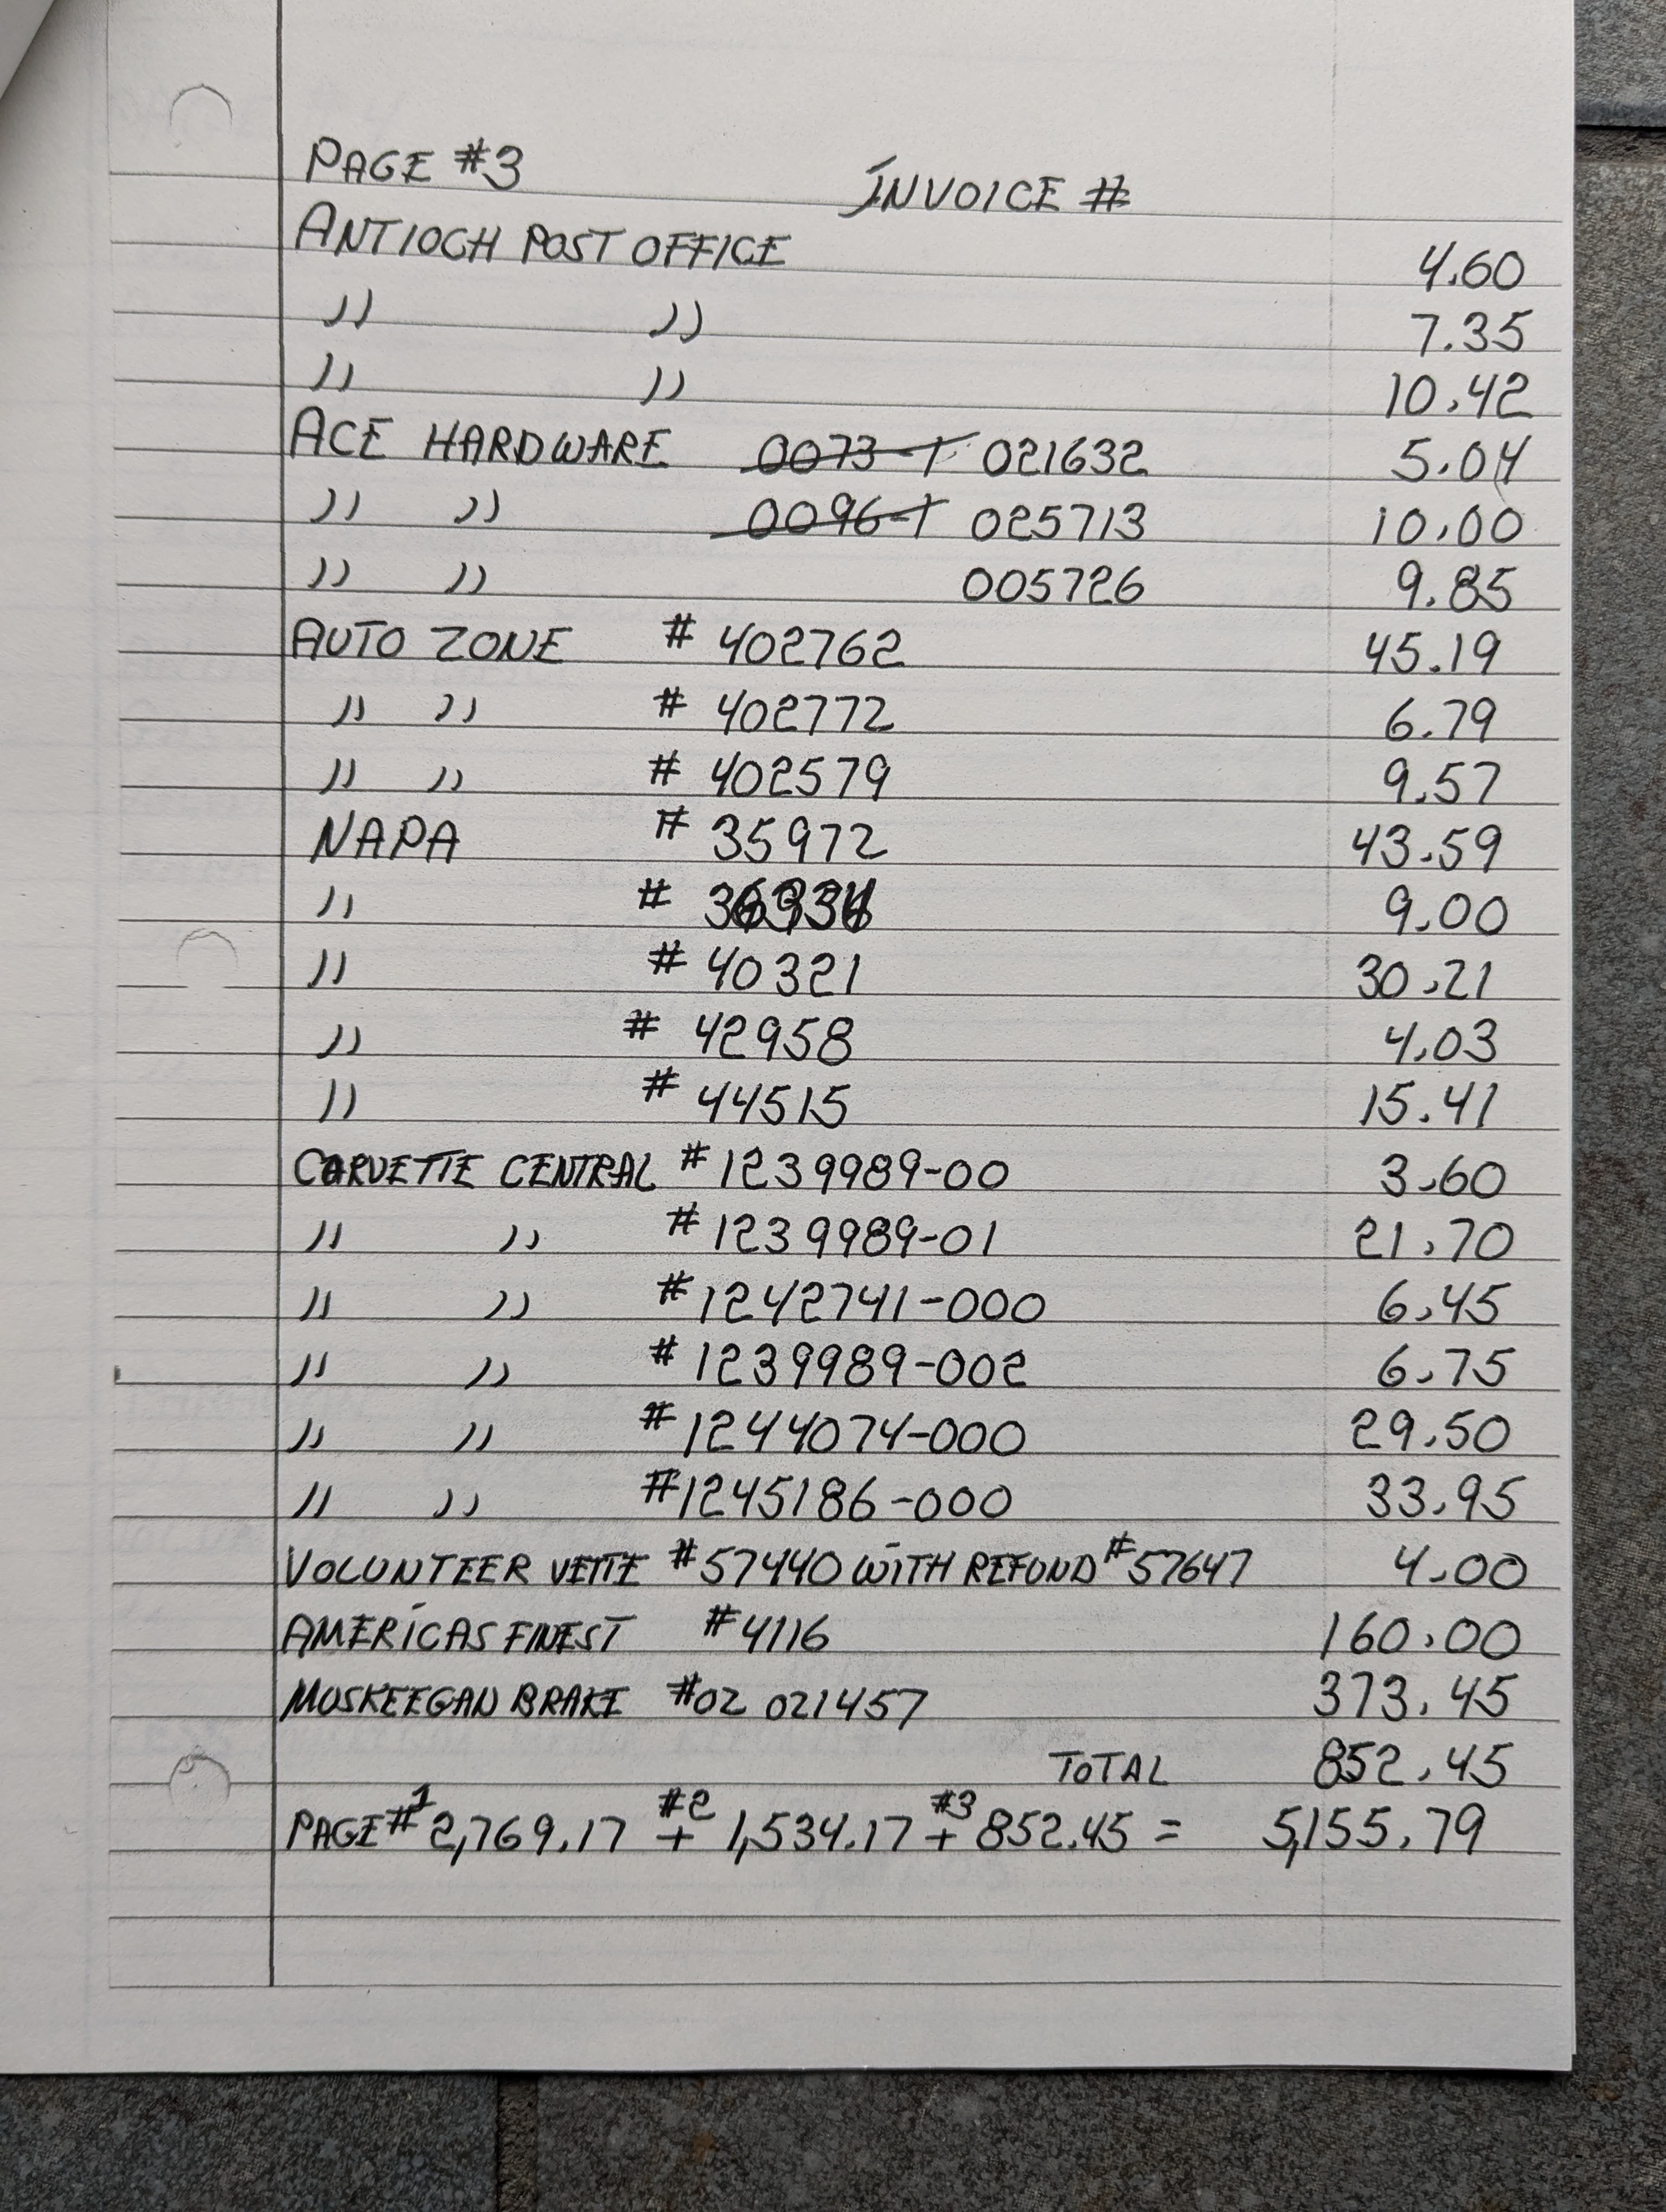 PAGE #3 INVOICE #
ANTIOCH POST OFFICE 4.60
" " 7.35
" " 10.42
ACE HARDWARE 0073-1 021632 5.04
" " 0096-1 025713 10.00
" " 005726 9.85
AUTO ZONE # 402762 45.19
" " # 402772 6.79
" " # 402579 9.57
NAPA # 35972 43.59
" # 9.00
" # 40321 30.21
" # 42958 4.03
" # 44515 15.41
CORVETTE CENTRAL # 1239989-00 3.60
" " # 1239989-01 21.70
" " # 1242741-000 6.45
" " # 1239989-002 6.75
" " # 1244074-000 29.50
" " # 1245186-000 33.95
VOLUNTEER VETTE # 57440 WITH REFUND # 57647 4.00
AMERICAS FINEST # 4116 160.00
MUSKEEGAN BRAKE #02 021457 373.45
TOTAL 852.45
PAGE #1 2,769.17 #2 + 1,534.17 #3 + 852.45 = 5,155.79